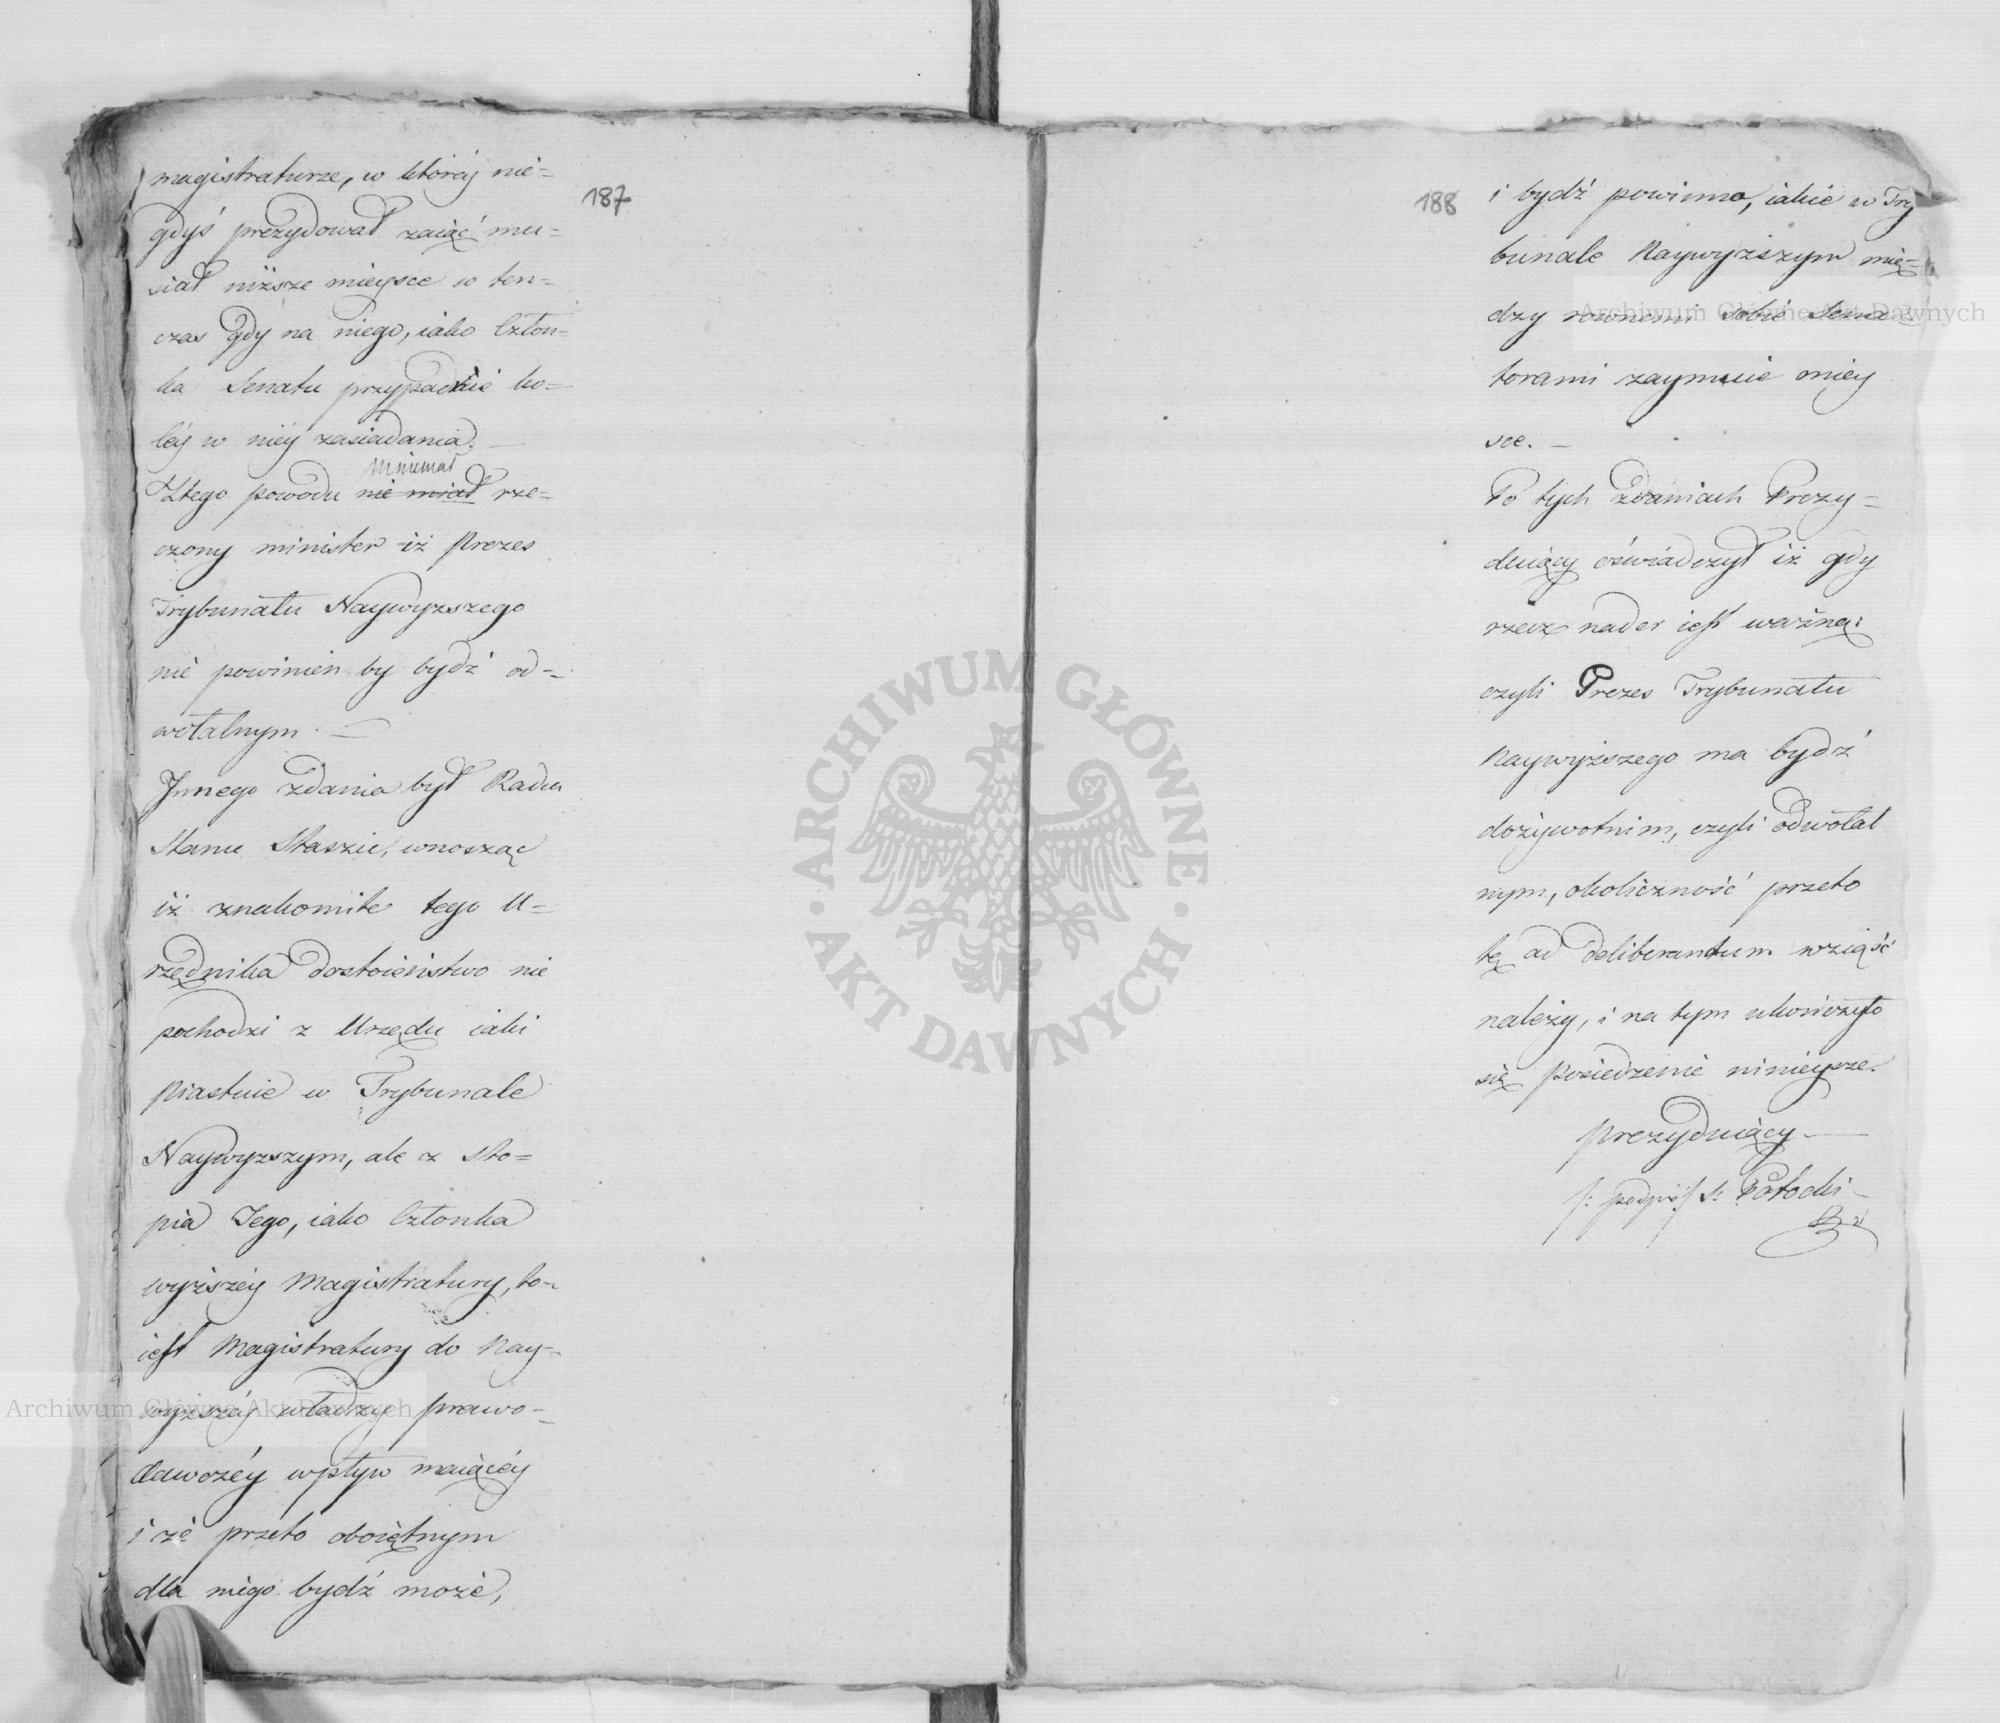 187
magistraturze, w którey nie=
gdyś prezydował zaiąć mu=
siał niższe mieysce w ten=
czas gdy na niego, iako Człon=
ka Senatu przypadnie ko=
léy w niéy zasiadania. —
Z tego powodu nie miał mniemał rze=
czony minister iż Prezes
Trybunału Naywyzszego
nie powinien by bydź od=
wołalnym. —
Innego zdania był Radca
Stanu Staszic, wnosząc
iż znakomite tego U=
rzędnika dostoieństwo nie
pochodzi z Urzędu iaki
piastuie w Trybunale
Naywyzszym, ale z sto=
pia Jego, iako Członka
wyższéy Magistratury, to=
iest Magistratury do Nay=
wyższéy władzy prawo=
dawczéy wpływ maiącéy
i że przeto oboiętnym
dla niego bydź może,
188
i bydź powinno, iakie w Try
bunale Naywyższym mię=
dzy równemi sobie Sena=
torami zaymuie miey
sce. —
Po tych zdaniach Prezy=
duiący oświadczył iż gdy
rzecz nader iest ważną:
czyli Prezes Trybunału
Naywyższego ma bydź
dożywotnim, czyli odwołal
nym, okoliczność przeto
tę ad deliberandum wziąść
należy, i na tym ukończyło
się posiedzenie ninieysze.
Prezyduiący —
/: podpis :/ S: Potocki —
Archiwum Główne Akt Dawnych
Archiwum Główne Akt Dawnych
ARCHIWUM GŁÓWNE
AKT DAWNYCH